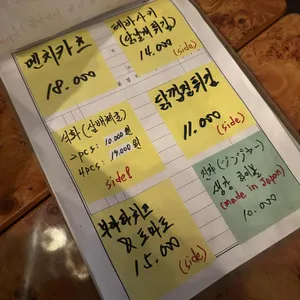 멘치카츠
18.000
테바사키
(닭날개튀김)
14.000
(side)
석화 (삼배체굴)
2pcs: 10.000원
4pcs: 19.000원
side
닭껍질튀김
11.000
(side)
부라타치즈
& 토마토
15.000
(side)
생강 하이볼
(made in Japan)
10.000